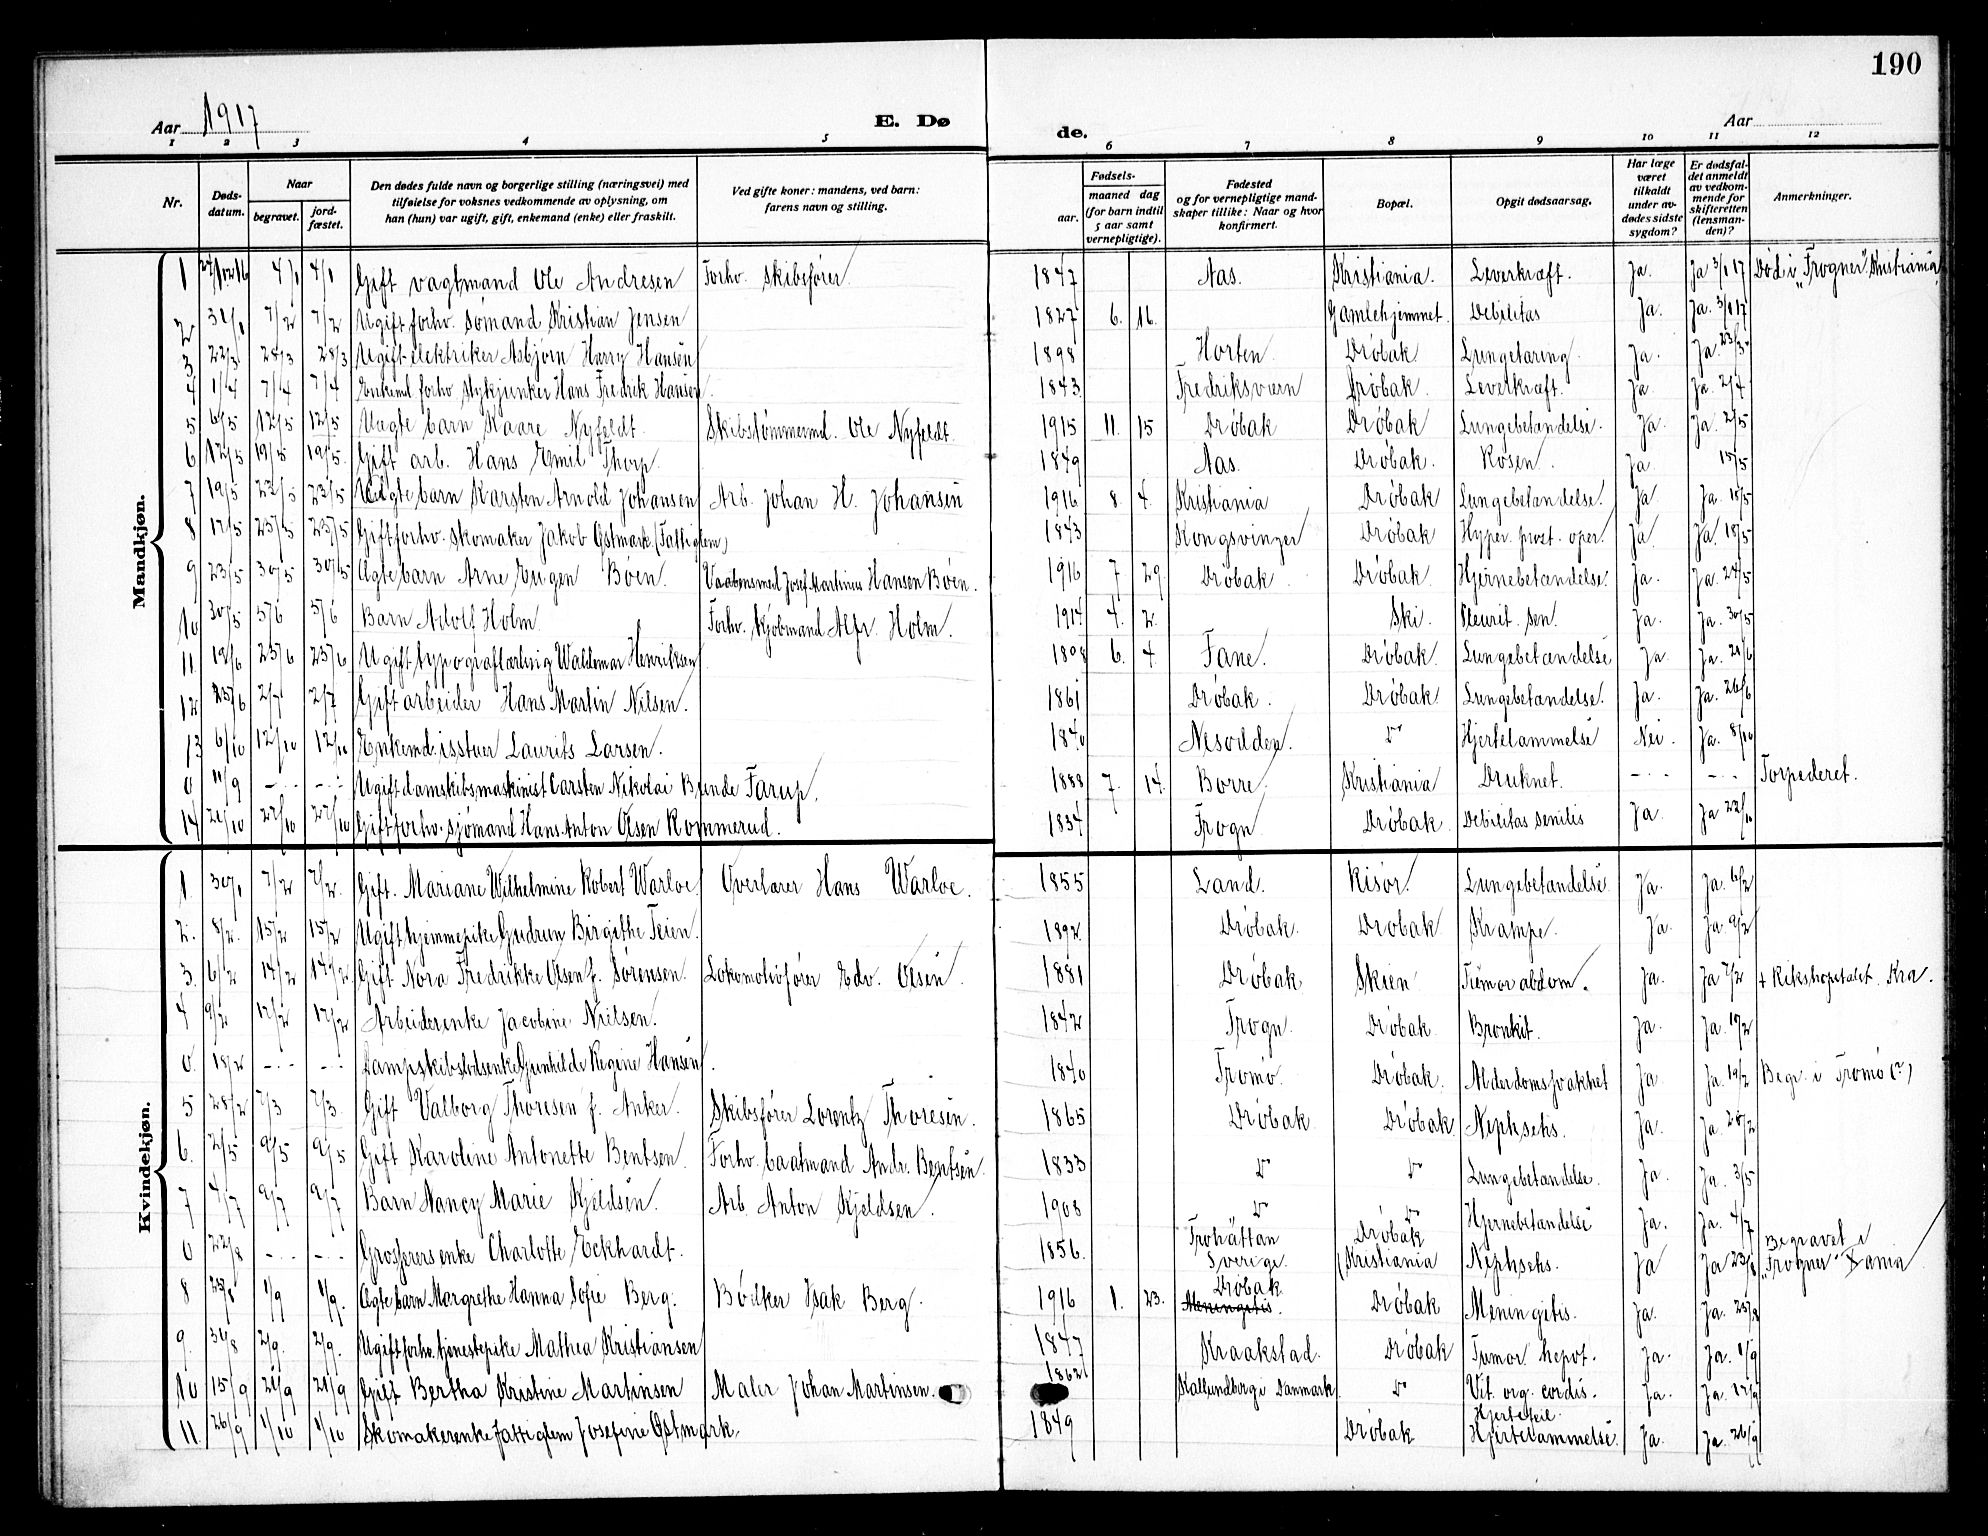 190
Aar 1917
E. Døde.
Aar
1 2 3 4 5 6 7 8 9 10 11 12
Nr.
Døds-datum.
Naar
begravet.
jord-fæstet.
Den dødes fulde navn og borgerlige stilling (næringsvei) med tilføielse for voksnes vedkommende av oplysning, om han (hun) var ugift, gift, enkemand (enke) eller fraskilt.
Ved gifte koner: mandens, ved barn: farens navn og stilling.
Fødsels-
aar.
maaned dag
(for barn indtil 5 aar samt vernepligtige).
Fødested og for vernepligtige mand-skaper tillike: Naar og hvor konfirmert.
Bopæl.
Opgit dødsaarsag.
Har læge været tilkaldt under av-dødes sidste sygdom?
Er dødsfal-det anmeldt av vedkom-mende for skifteretten (lensman-den)?
Anmerkninger.
Mandkjøn.
1 27/12 16 4/1 4/1 Gift vagtmand Ole Andresen Forhv. skibsfører 1847 Aas. Kristiania. Leverkræft. Ja. Ja 3/1 17 Død i "Frogner", Kristiania
2 31/1 7/2 7/2 Ugift forhv. sømand Kristian Jensen 1827 6. 16. Gamlehjemmet. Debilitas Ja. Ja. 3/1 17
3 22/3 28/3 28/3 Ugift elektriker Asbjørn Harry Hansen 1898 Horten. Drøbak Lungetæring. Ja. Ja. 23/3
4 1/4 7/4 7/4 Enkemd. forhv. stykjunker Hans Fredrik Hansen. 1843 Fredriksværn Drøbak Leverkræft. Ja. Ja. 2/4
5 6/5 12/5 12/5 Uægte barn Kaare Nyfeldt. Skibstømmermd. Ole Nyfeldt. 1915 11. 15 Drøbak Drøbak Lungebetændelse. Ja. Ja. 2/5
6 12/5 19/5 19/5. Gift arb. Hans Emil Thorp. 1849 Aas. Drøbak. Rosen. Ja. 15/5
7 19/5 23/5 23/5 Ægte barn Karsten Arnold Johansen Arb. Johan H. Johansen 1916 8. 4. Kristiania Drøbak Lungebetændelse. Ja Ja. 18/5
8 17/5 23/5 23/5 Gift forhv. skomaker Jakob Østmark. (Fattiglem) 1843 Kongsvinger Drøbak Hyper. prost. oper. Ja. Ja. 18/5
9 23/5 30/5 30/5 Ægte barn Arne Eugen Bøen. Vaabensmed Josef Martinius Hansen Bøen. 1916 7 29. Drøbak. Drøbak. Hjernebetændelse. Ja. Ja. 24/5
10 30/5 5/6 5/6 Barn Adolf Holm Forhv. Kjøbmand Alfr. Holm. 1914 4. 2. Ski. Pleurit. sen. Ja. Ja. 30/5
11 19/6 25/6 25/6 Ugift typograflærling Waldemar Henriksen 1898 6. 4. Fane. Drøbak. Lungebetændelse Ja. Ja. 20/6
12 25/6 2/7 2/7 Gift arbeider Hans Martin Nilsen. 1861 Drøbak. Drøbak Lungebetændelse. Ja. Ja. 26/6
13 6/10 12/10 12/10 Enkemd. isstuer Laurits Larsen. 1840 Nesodden. Do Hjertelammelse Nei. Ja. 8/10
0 11/9 -.- -.- Ugift damskibsmaskinist Carsten Nikolai Bunde Farup. 1888 7. 14. Borre. Kristiania Druknet. -.- -.- Torpederet.
14 21/10 27/10 27/10 Gift forhv. sjømand Hans Anton Olsen Rommerud. 1834 Frogn Drøbak. Debilitas senilis Ja Ja 22/10
Kvindekjøn.
1 30/1 7/2 7/2. Gift. Mariane Wilhelmine Robert Warloe Overlærer Hans Warloe. 1855 Land. Risør. Lungebetændelse. Ja. Ja. 6/2
2. 8/2. 15/2 15/2 Ugift hjemmepike Gudrun Birgithe Teien. 1892. Drøbak. Drøbak. Krampe. Ja. Ja. 9/2
3. 6/2 14/2 14/2 Gift Nora Fredrikke Olsen f. Sørensen. Lokomotivfører Edv. Olsen. 1881 Drøbak Skien Tumor abdom. Ja. Ja 7/2 + Rikshopetalet. Kra.
4 9/2 17/2 17/2 Arbeiderenke Jacobine Nielsen. 1842 Frogn. Drøbak. Bronkit. Ja. Ja. 10/2
0 18/2 -.- -.- Dampskibslodsenke Gunhilde Regine Hansen. 1840 Tromø. Drøbak. Alderdomssvakhet Ja Ja. 19/2 Begr. i Tromø (?)
5 28/2 7/3 7/3. Gift Valborg Thoresen f. Anker. Skibsfører Lorentz Thoresen. 1865 Drøbak Drøbak Nephseks. Ja. Ja. 28/2
6. 2/5 9/5 9/5 Gift Karoline Antonette Bentsen. Forhv. baatmand Andr. Bentsen. 1833 Do Do Lungebetændelse. Ja. Ja. 3/5
7 4/7 9/7 9/7 Barn Nancy Marie Kjeldsen. Arb. Anton Kjeldsen. 1908 Do Do Hjernebetændelse Ja. Ja. 4/7
0 22/8 -.- -.- Grosserersenke Charlotte Eckhardt. 1856. Trohättan Sverige. Drøbak (Kristiania Nephseks. Ja Ja 23/8 Begravet i "Frogner"
8 25/8 1/9 1/9. Ægte barn Margrethe Hanna Sofie Berg. Bødker Isak Berg. 1916 1. 23. Drøbak Meningitis. Drøbak Meningitis. Ja. Ja. 25/8
9. 31/8 2/9. 2/9. Ugift forhv. tjenestepike Mathea Kristiansen 1847 Kraakstad. Drøbak Tumor hepot. Ja. Ja. 1/9
10 15/9 21/9 21/9 Gift Bertha Kristine Martinsen Maler Johan Martinsen. 1862 Kallundborg i Danmark Do Vit. org. cordis. Ja. Ja. 17/9
11. 26/9 1/10 1/10 Skomakerenke fattiglem Josefine Østmark. 1849 Drøbak Hjertefeil Hjertelammelse. Ja. Ja. 26/9